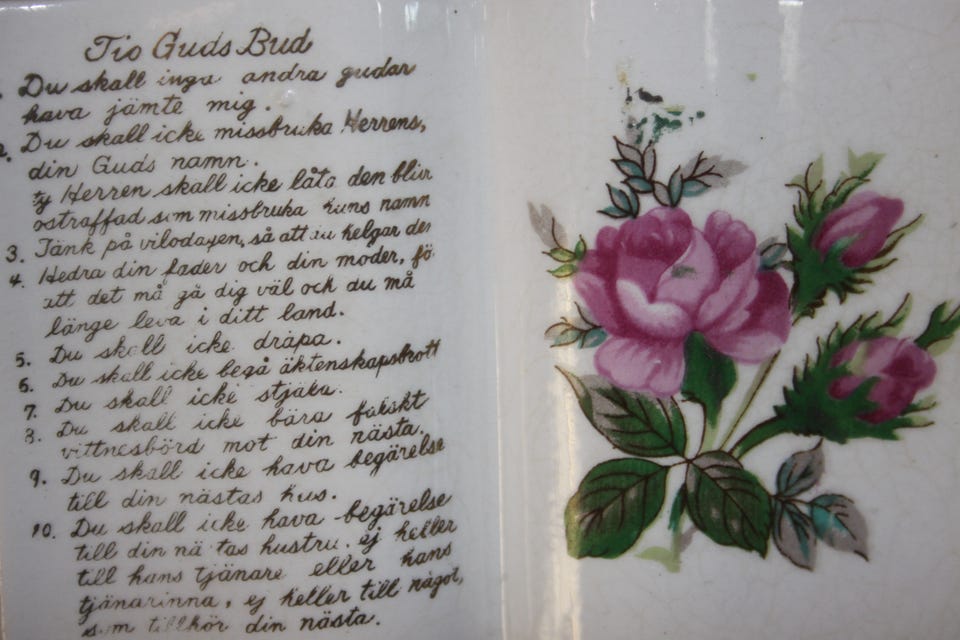 Tio Guds Bud
Du skall inga andra gudar
hava jämte mig.
2. Du skall icke missbruka Herrens,
din Guds namn.
ty Herren skall icke låta den bliv
ostraffad som missbruka hans namn
3. Tänk på vilodagen, så att du helgar den
4. Hedra din fader och din moder, fö
att det må gå dig väl och du må
länge leva i ditt land.
5. Du skall icke dräpa.
6. Du skall icke begå äktenskapsbrott
7. Du skall icke stjäla.
8. Du skall icke bära falskt
vittnesbörd mot din nästa.
9. Du skall icke hava begärelse
till din nästas hus.
10. Du skall icke hava begärelse
till din nästas hustru, ej heller
till hans tjänare eller hans
tjänarinna, ej heller till något,
som tillhör din nästa.